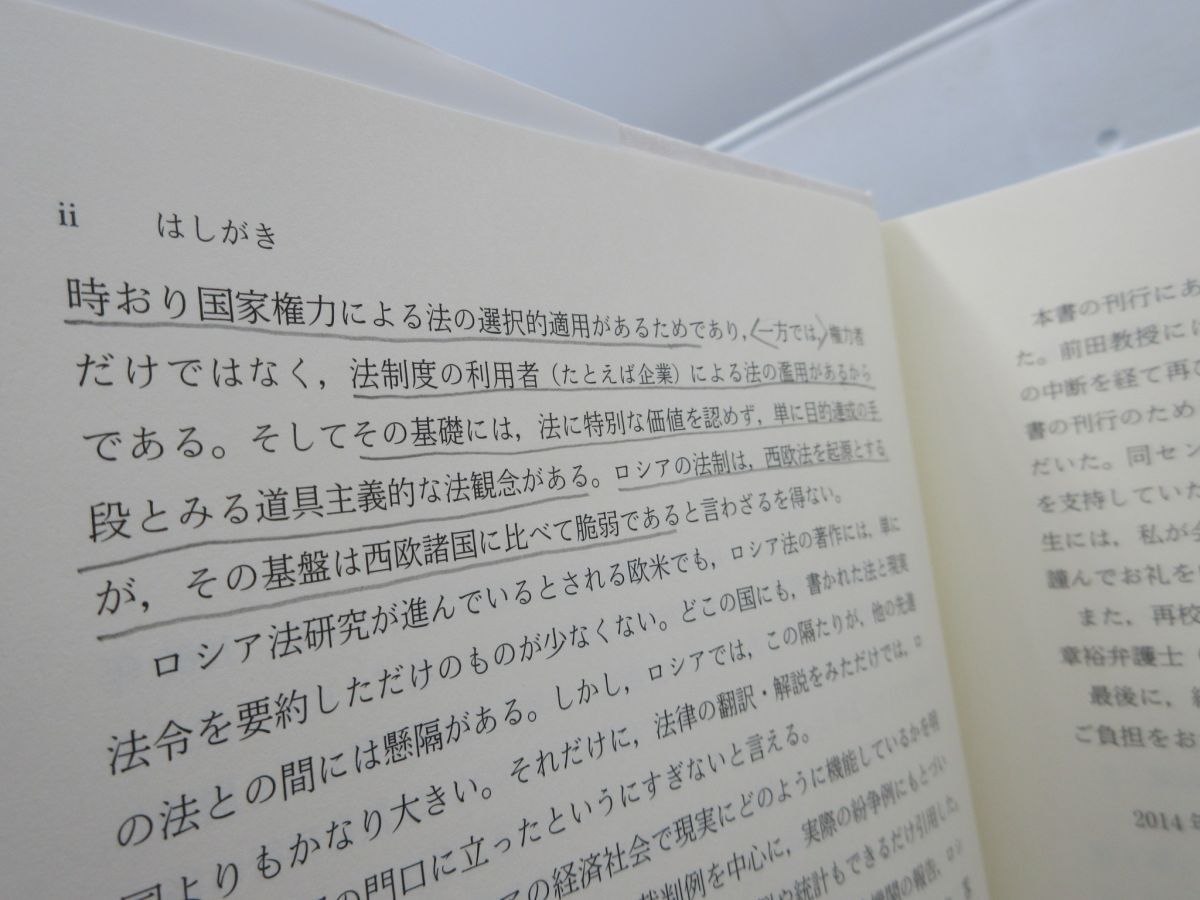 ii はしがき
時おり国家権力による法の選択的適用があるためであり，一方では，権力者
だけではなく，法制度の利用者（たとえば企業）による法の濫用があるから
である。そしてその基礎には，法に特別な価値を認めず，単に目的達成の手
段とみる道具主義的な法観念がある。ロシアの法制は，西欧法を起源とする
が，その基盤は西欧諸国に比べて脆弱であると言わざるを得ない。
ロシア法研究が進んでいるとされる欧米でも，ロシア法の著作には，単に
法令を要約しただけのものが少なくない。どこの国にも，書かれた法と現実
の法との間には懸隔がある。しかし，ロシアでは，この隔たりが，他の先進
国よりもかなり大きい。それだけに，法律の翻訳・解説をみただけでは，ロ
の門口に立ったというにすぎないと言える。
の経済社会で現実にどのように機能しているかを明
裁判例を中心に，実際の紛争例にもとづい
や統計もできるだけ引用した。
機関の報告，ロシ
本書の刊行にあ
た。前田教授には
の中断を経て再び
書の刊行のため
だいた。同セン
を支持していた
生には，私が
謹んでお礼を
また，再校
章裕弁護士
最後に，
ご負担をお
2014 年